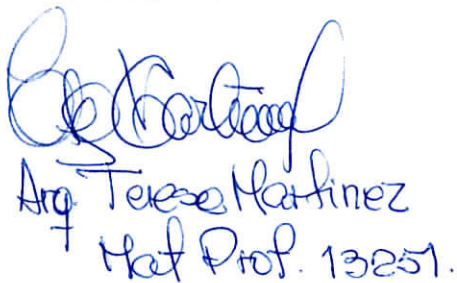 Arq. Teresa Martinez
Mat Prof. 13251.